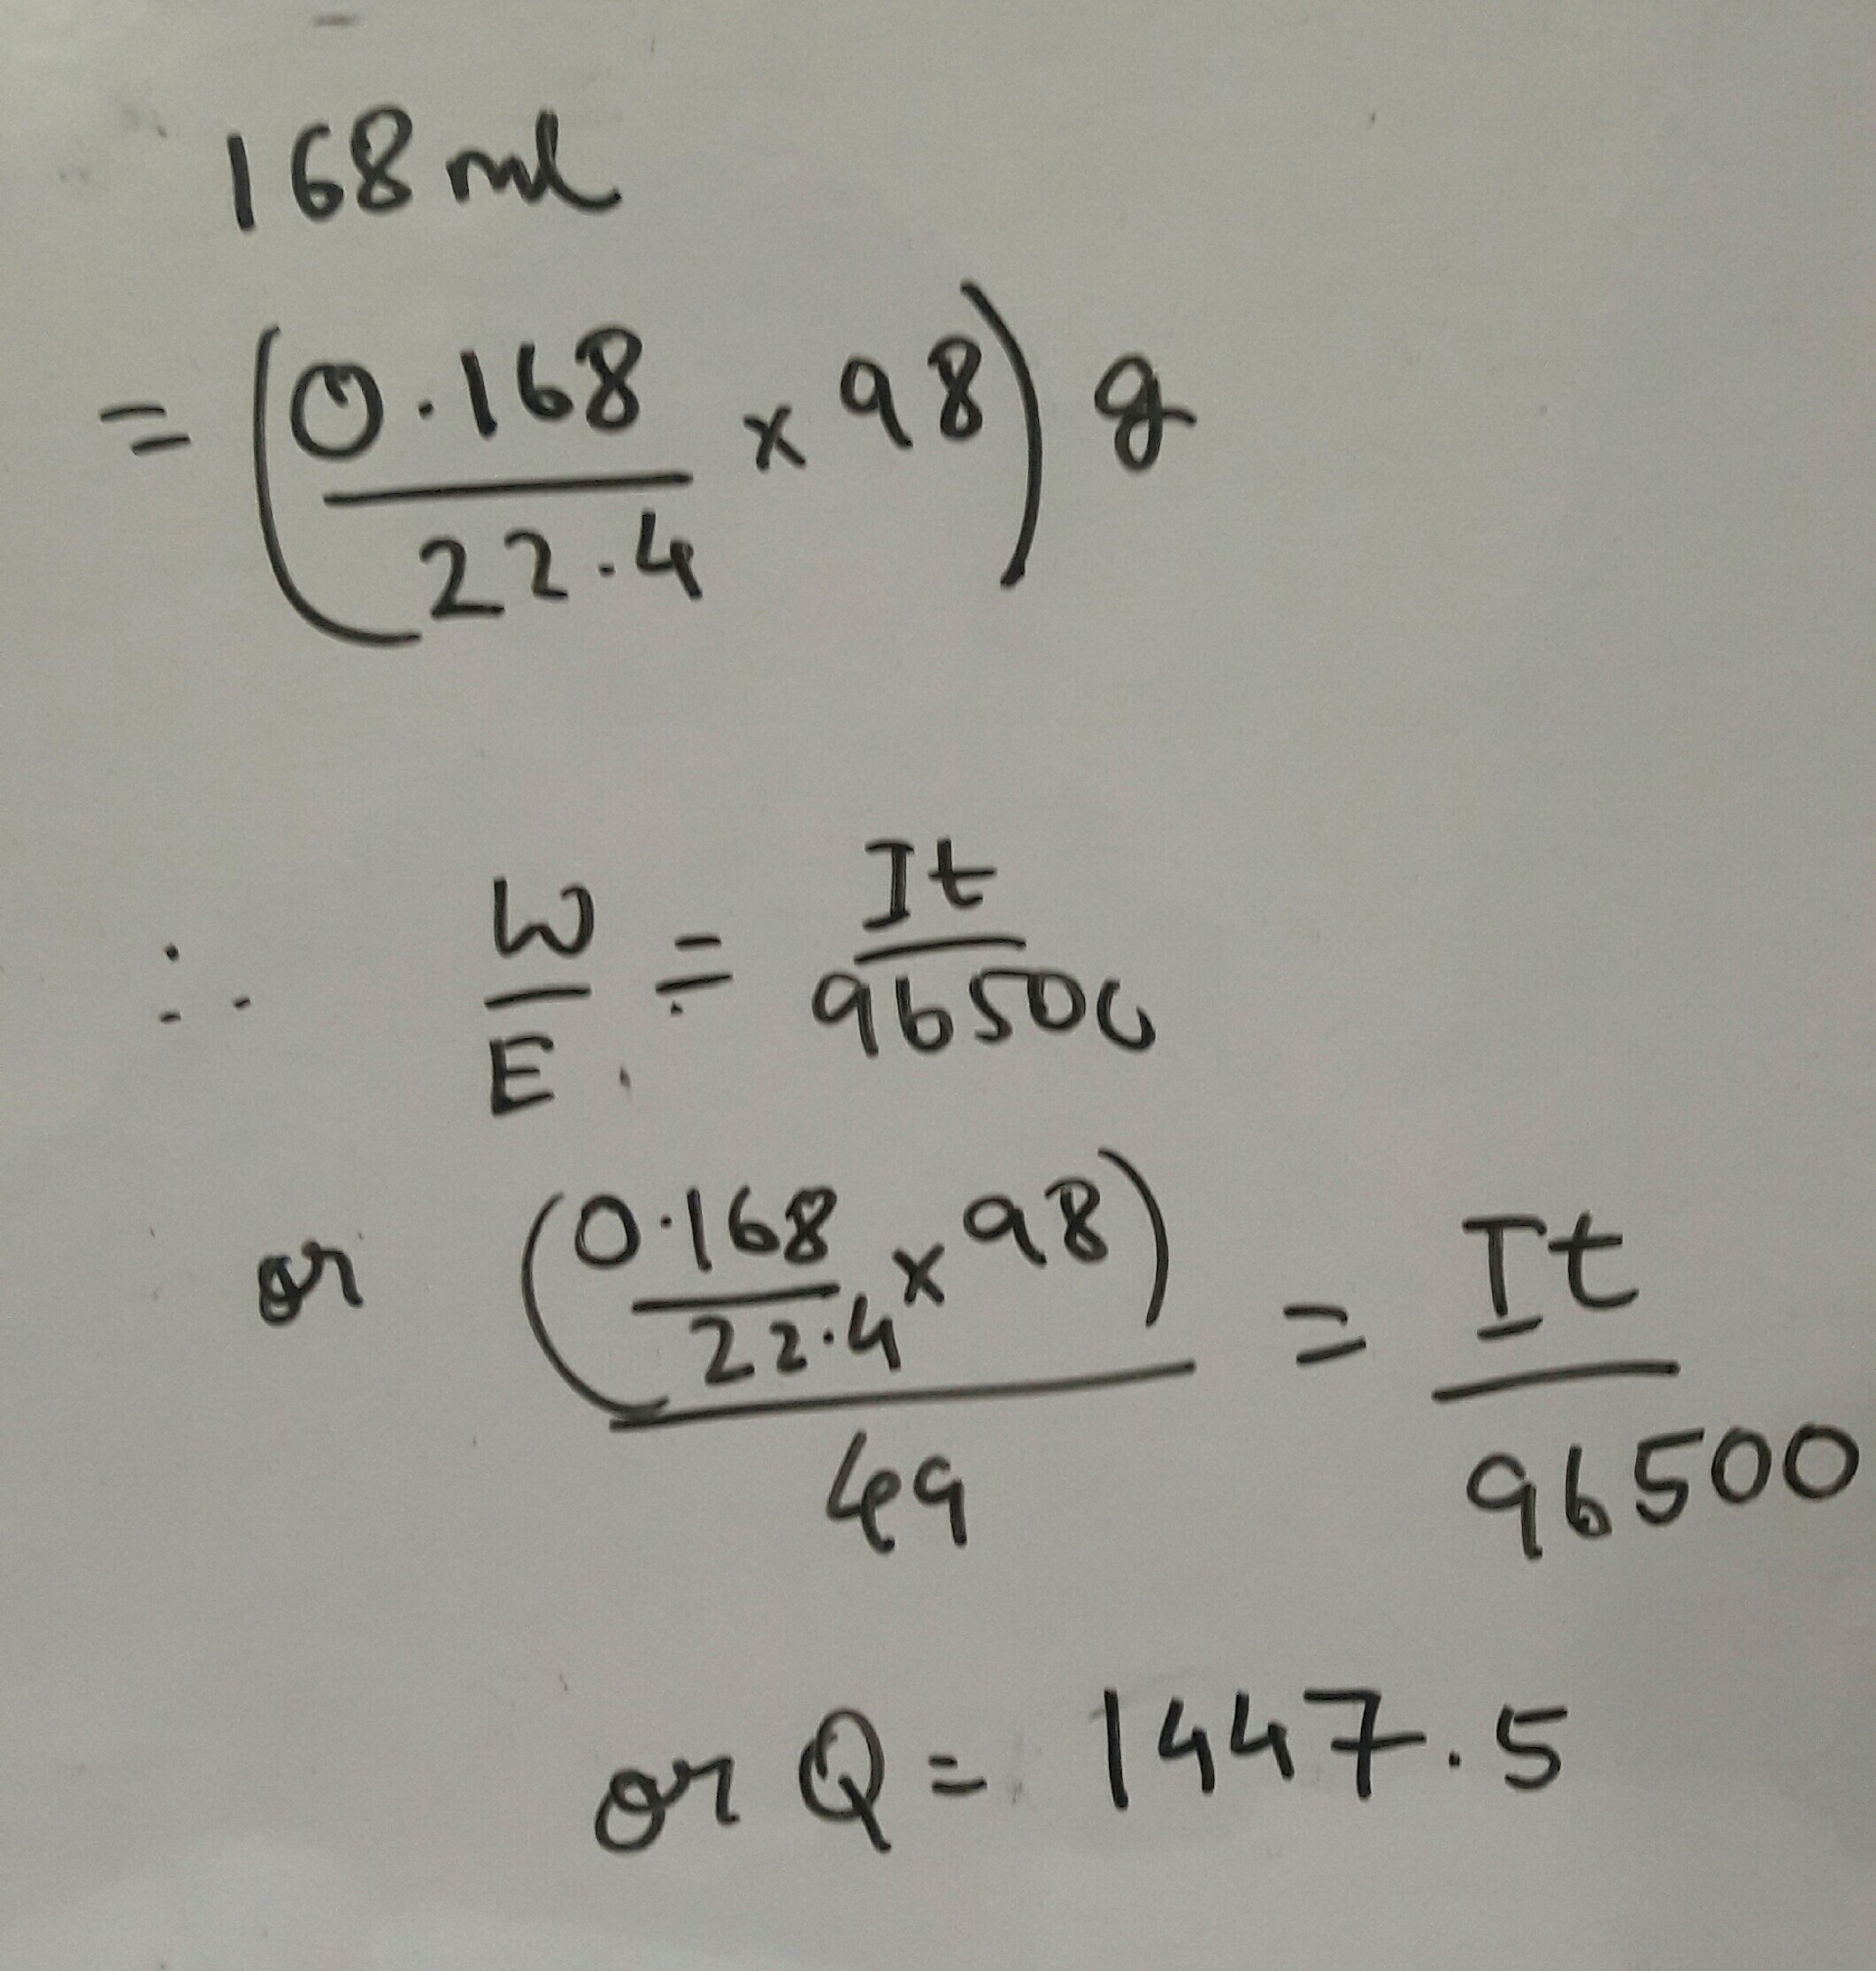 168 ml
= (0.168/22.4 × 98) g
∴ W/E = It/96500
or (0.168/22.4 × 98)/49 = It/96500
or Q = 1447.5